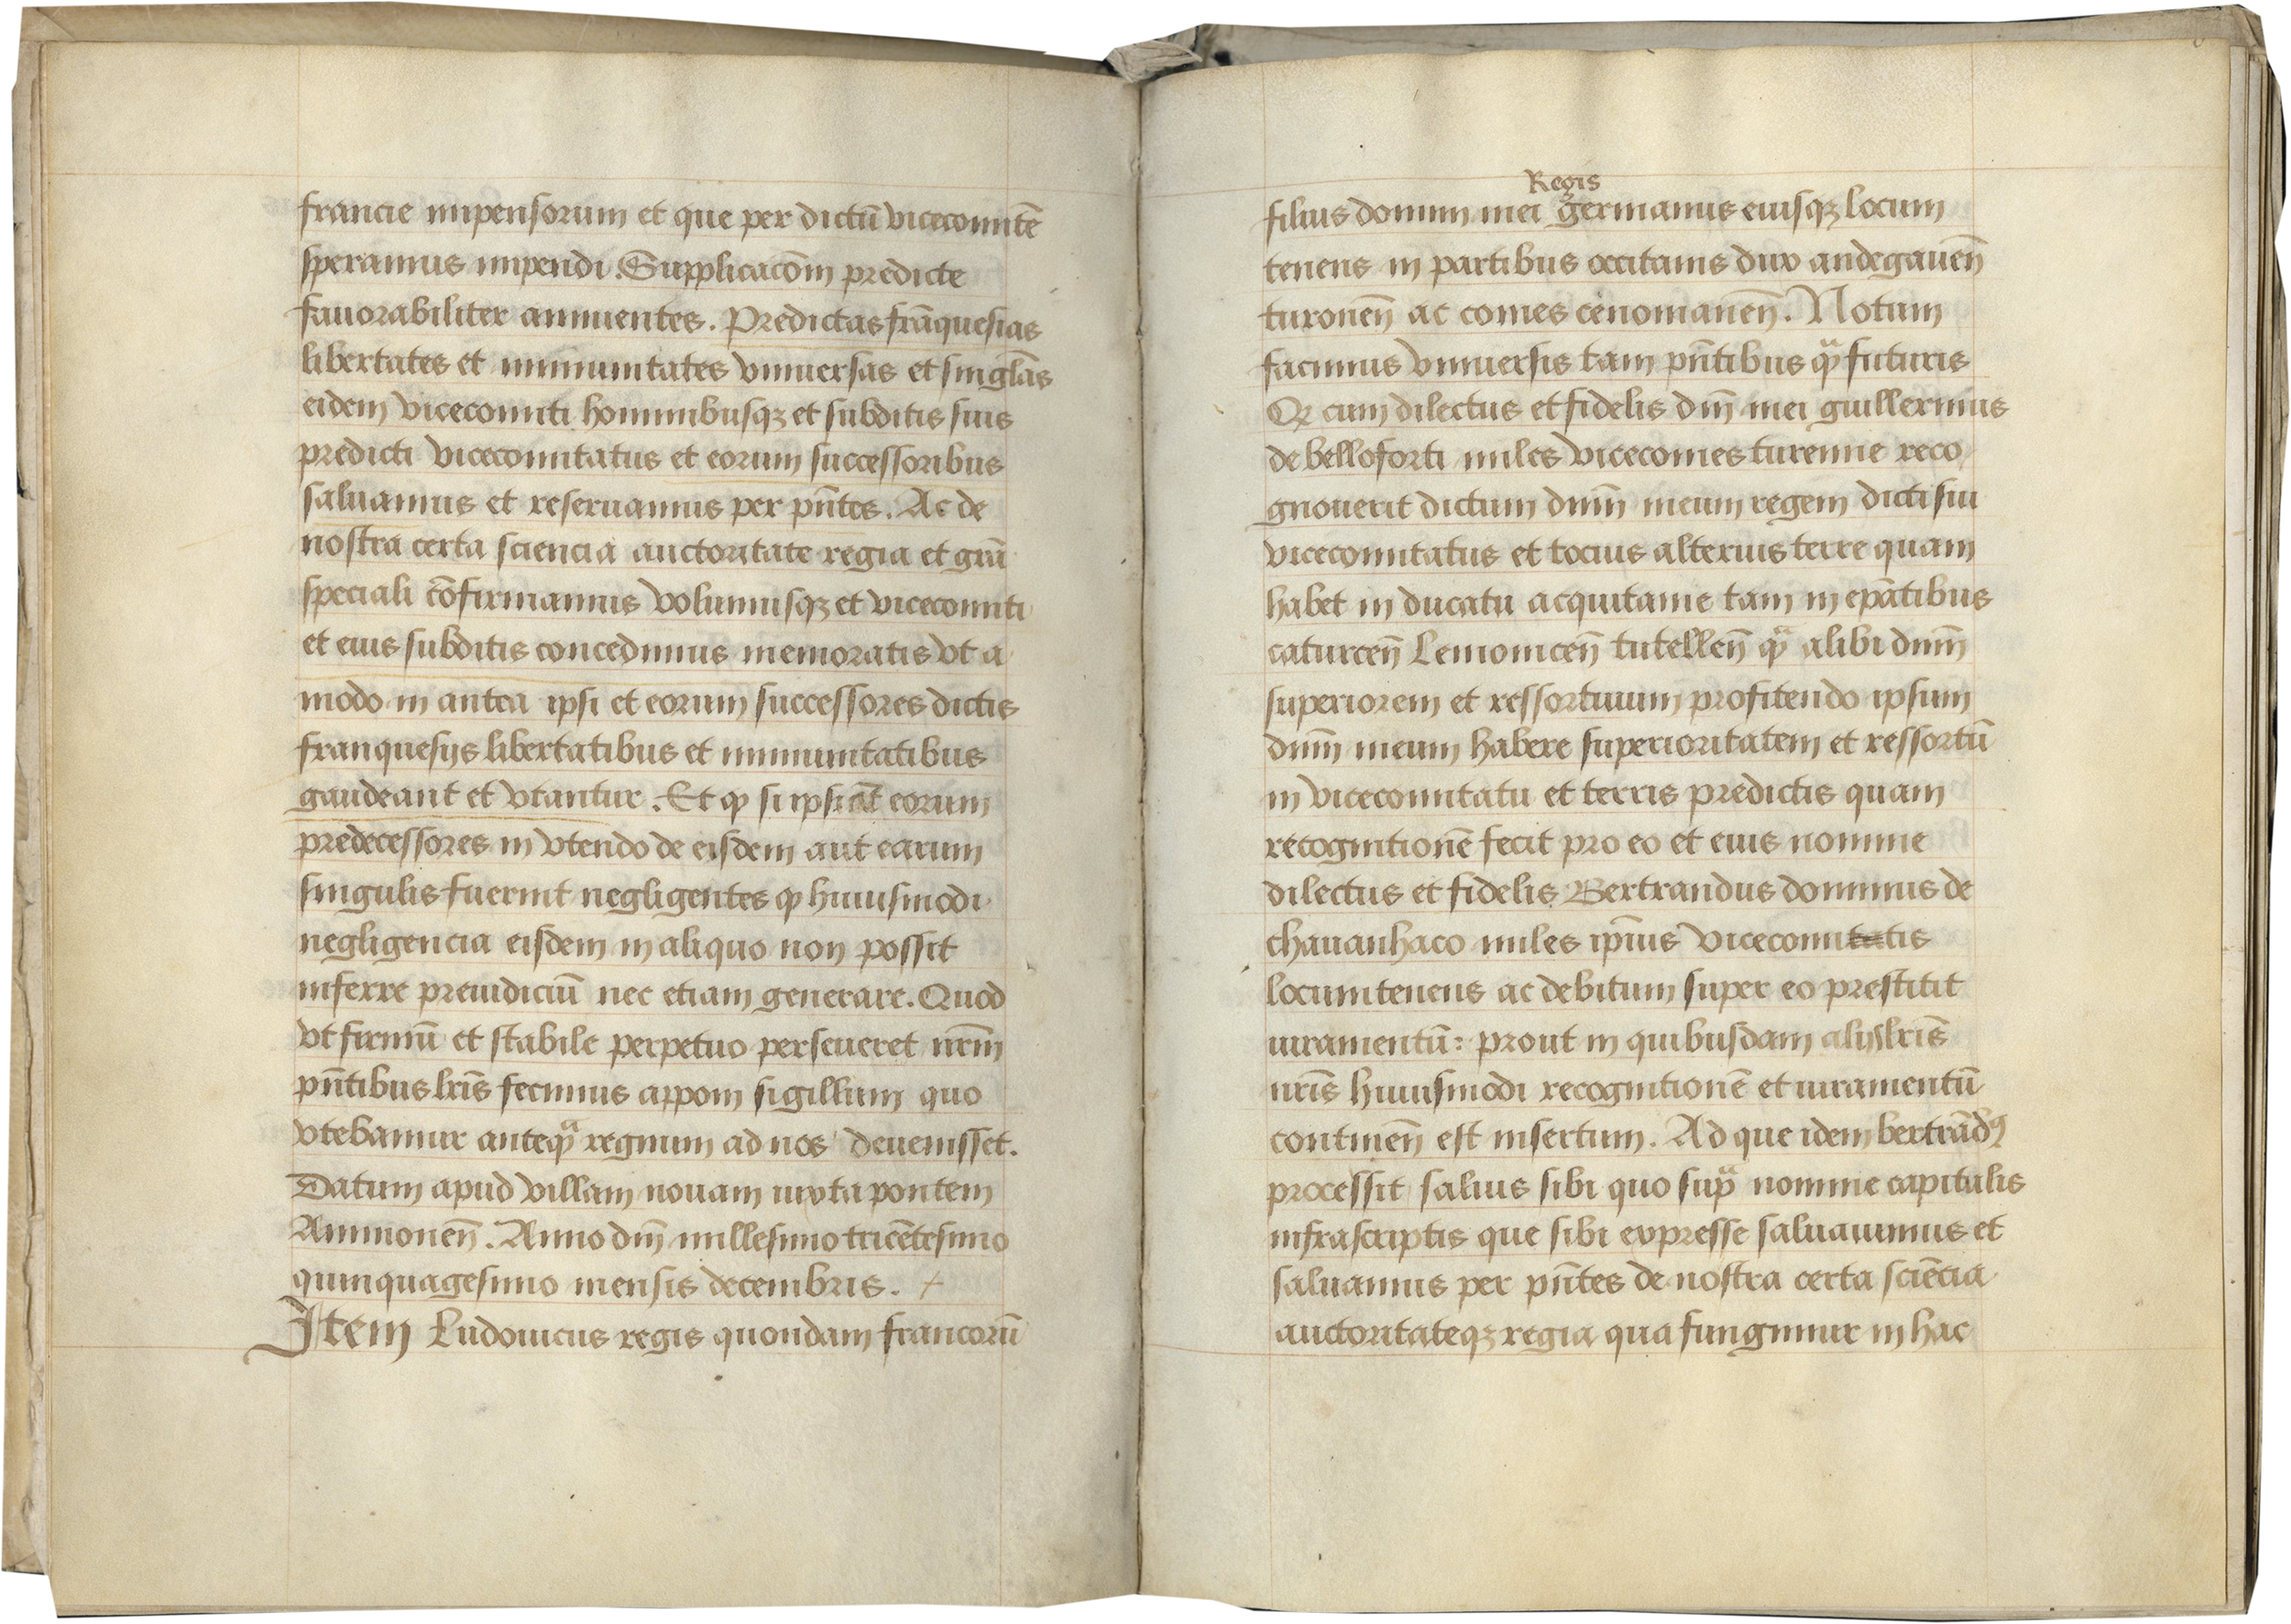 francie impensorum et que per dictū vicecomitē
speramus impendi. Supplicacōm predicte
fauorabiliter annuentes. Predictas frāquesias
libertates et immunitates vniuersas et singlās
eidem vicecomiti hominibusqꝫ et subditis suis
predicti vicecomitatus et eorum successoribus
saluamus et reseruamus per pn̄tes. Ac de
nostra certa sciencia auctoritate regia et grā
speciali cōfirmamus volumusqꝫ et vicecomiti
et eius subditis concedimus memoratis vt a
modo in antea ipsi et eorum successores dictis
franquesijs libertatibus et immunitatibus
gaudeant et vtantur. Et ꝙ si ipsi aūt eorum
predecessores in vtendo de eisdem aut earum
singulis fuerint negligentes ꝙ huiusmodi
negligencia eisdem in aliquo non possit
inferre preiudiciū nec etiam generare. Quod
vt firmū et stabile perpetuo perseueret nr̄m
pn̄tibus lr̄is fecimus apponi sigillum quo
vtebamur anteqᷓ regnum ad nos deuenisset.
Datum apud villam nouam iuxta pontem
Auinionen̄. Anno dn̄i millesimo tricētesimo
quinquagesimo mensis decembris. +
Item Ludouicus regis quondam francorū
Regis
filius domini mei germanus eiusqꝫ locum
tenens in partibus occitanis dux andegauen̄
turonen̄ ac comes cenomanen̄. Notum
facimus vniuersis tam pn̄tibus qᷓ futuris
Qꝫ cum dilectus et fidelis dn̄i mei guillermus
de belloforti miles vicecomes turenne reco
gnouerit dictum dnm̄ meum regem dicti sui
vicecomitatus et tocius alterius terre quam
habet in ducatu acquitanie tam in epātibus
caturcen̄ Lemouicen̄ tutellen̄ qᷓ alibi dnm̄
superiorem et ressortiuum profitendo ipsum
dnm̄ meum habere superioritatem et ressortū
in vicecomitatu et terris predictis quam
recognitionē fecit pro eo et eius nomine
dilectus et fidelis Bertrandus dominus de
chauanhaco miles ip̄ius vicecomitatis
locumtenens ac debitum super eo prestitit
iuramentū: prout in quibusdam alijs lr̄is
nr̄is huiusmodi recognitionē et iuramentū
continen̄ est insertum. Ad que idem bertrādꝰ
processit saluis sibi quo supᷓ nomine capitulis
infrascriptis que sibi expresse saluauimus et
saluamus per pn̄tes de nostra certa sciēcia
auctoritateqꝫ regia qua fungimur in hac